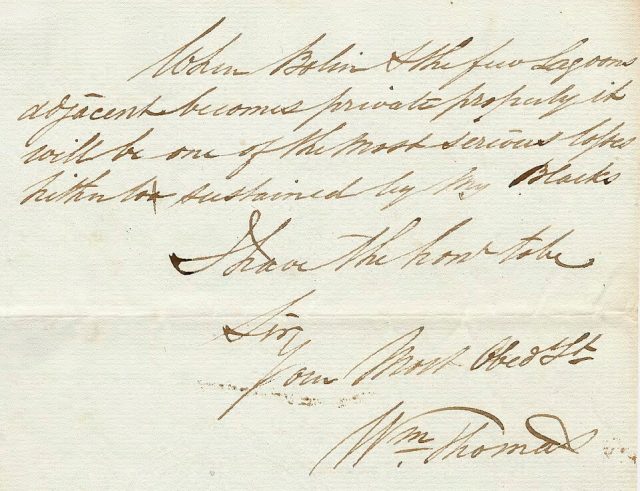 When Bolin & the few Lagoons
adjacent becomes private property it
will be one of the most serious losses
hitherto sustained by my Blacks
I have the honr to be
Sir
Your Most Obedt St
Wm. Thomas